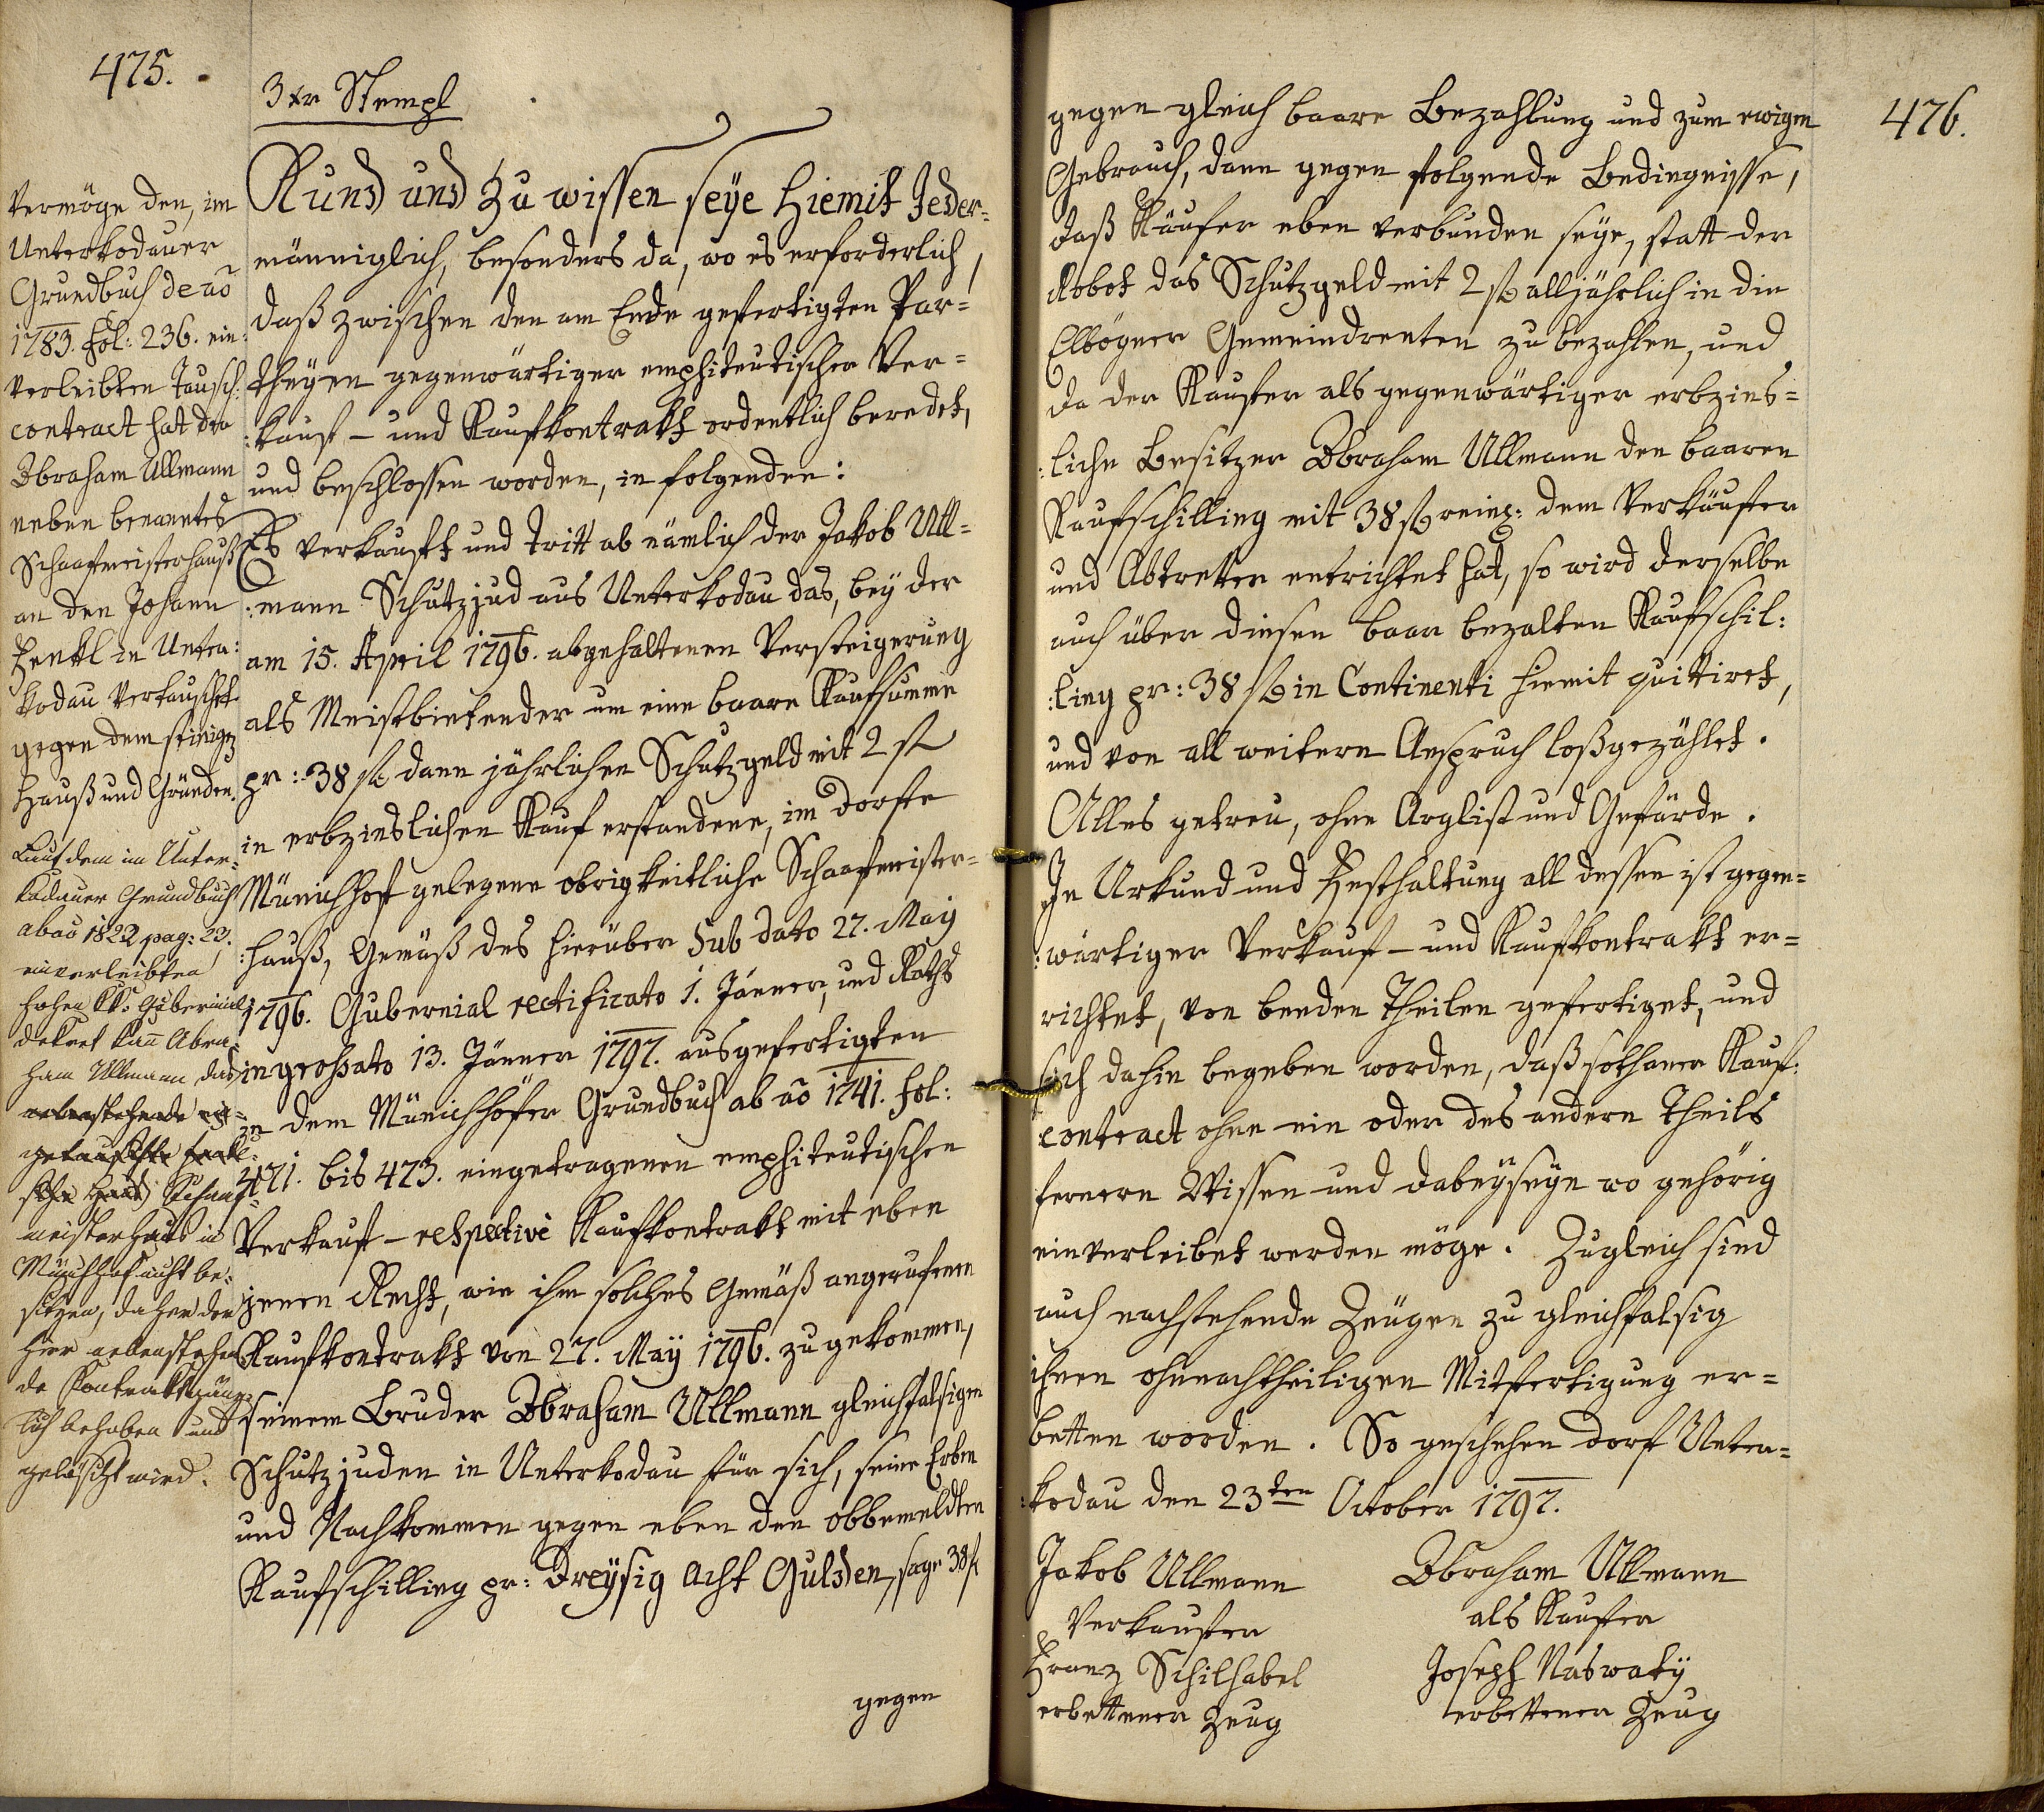 475.
3 xr Stempl
Kund und Zu wissen seÿe hiemit Jeder=
männiglich, besonders da, wo es erforderlich,
daß zwischen den am Ende gefertigten Par=
theÿen gegenwärtiger emphiteutischer Ver=
:kauf - und Kaufkontrakt ordentlich beredet,
und beschlossen worden, in folgenden:
Es verkauft und tritt ab nämlich der Jakob Ull=
:mann Schutzjud aus Unterkodau das, beÿ der
am 15. April 1796. abgehaltenen Versteigerung
als Meistbietender um eine baare Kaufsumme
pr: 38 f dann jährlichen Schutzgeld mit 2 f
in erbzinslichen Kauf erstandene, im dorfe
Münichhof gelegene obrigkeitliche Schaafmeister=
:hauß, Gemäß des hierüber Sub dato 27. Maÿ
1796. Gubernial rectificato 1. Jänner, und Raths
ingroßato 13. Jänner 1797. ausgefertigten
in dem Münichhöfer Grundbuch ab ao 1741. fol:
471. bis 473. eingetragenen emphiteutischen
Verkauf - respective Kaufkontrakt mit eben
jenen Recht, wie ihm solches Gemäß angerufenen
Kaufkontrakt von 27. Maÿ 1796. zu gekommen,
seinem Bruder Abraham Ullmann gleichfalsigen
Schutzjuden in Unterkodau für sich, seine Erben
und Nachkommen gegen eben den obbemeldten
Kaufschilling pr: Dreÿsig Acht Gulden, sage 38 f
gegen
Vermöge den, im
Unterkodauer
Grundbuch de ao
1783. fol: 236. ein:
verleibten Tausch:
contract hat der
Abraham Ullmann
neben benanntes
Schaafmeisterhauß
an den Johann
Henkl in Unter:
kodau vertauschet
gegen dem seinigen
Hauß und Gründen.
Laut dem im Unter=
kodauer Grundbuch
ab ao 1822 pag: 23.
einverleibten
hohen kk. Gubernial
dekret kan Abra=
ham Ullmann das
nebenstehende ein=
getauschte
sche Haus Schaaf=
meisterhaus in
Münchhof nicht be=
sitzen, daher der
hier nebenstehen
de Kontrakt gänz=
lich behoben und
gelöscht wird.
476.
gegen gleich baare Bezahlung und zum ewigen
Gebrauch, dann gegen folgende Bedingnisse,
daß Käufer eben verbunden seÿe, statt der
Robot das Schutzgeld mit 2 f alljährlich in die
Elbogner Gemeindrenten zu bezahlen, und
da der Kaufer als gegenwärtiger erbzins=
:liche Besitzer Abraham Ullmann den baaren
Kaufschilling mit 38 f reinl: dem Verkäufer
und Abtretter entrichtet hat, so wird derselbe
auch über diesen baar bezalten Kaufschil:
:ling pr: 38 f in Continenti hiemit quittiret,
und von all weitern Anspruch loßgezählet.
Alles getreu, ohne Arglist und Gefärde.
In Urkund und Festhaltung all dessen ist gegen=
:wärtiger Verkauf - und Kaufkontrakt er=
richtet, von beeden Theilen gefertiget, und
sich dahin begeben worden, daß sothaner Kauf:
contract ohne ein oder des andern Theils
fernern Wissen und dabeÿseÿn wo gehörig
einverleibet werden möge. Zugleich sind
auch nachstehende Zeügen zu gleichfalsig
ihnen ohnnachtheiligen Mitfertigung er=
betten worden. So geschehen dorf Unter=
:kodau den 23ten October 1797.
Jakob Ullmann Abraham Ullmann
Verkaufer als Kaufer
Franz Schilhabel Joseph Naswatÿ
erbettener Zeug erbettener Zeug